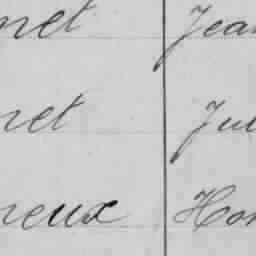 net Jean
net Jul
reux Hon